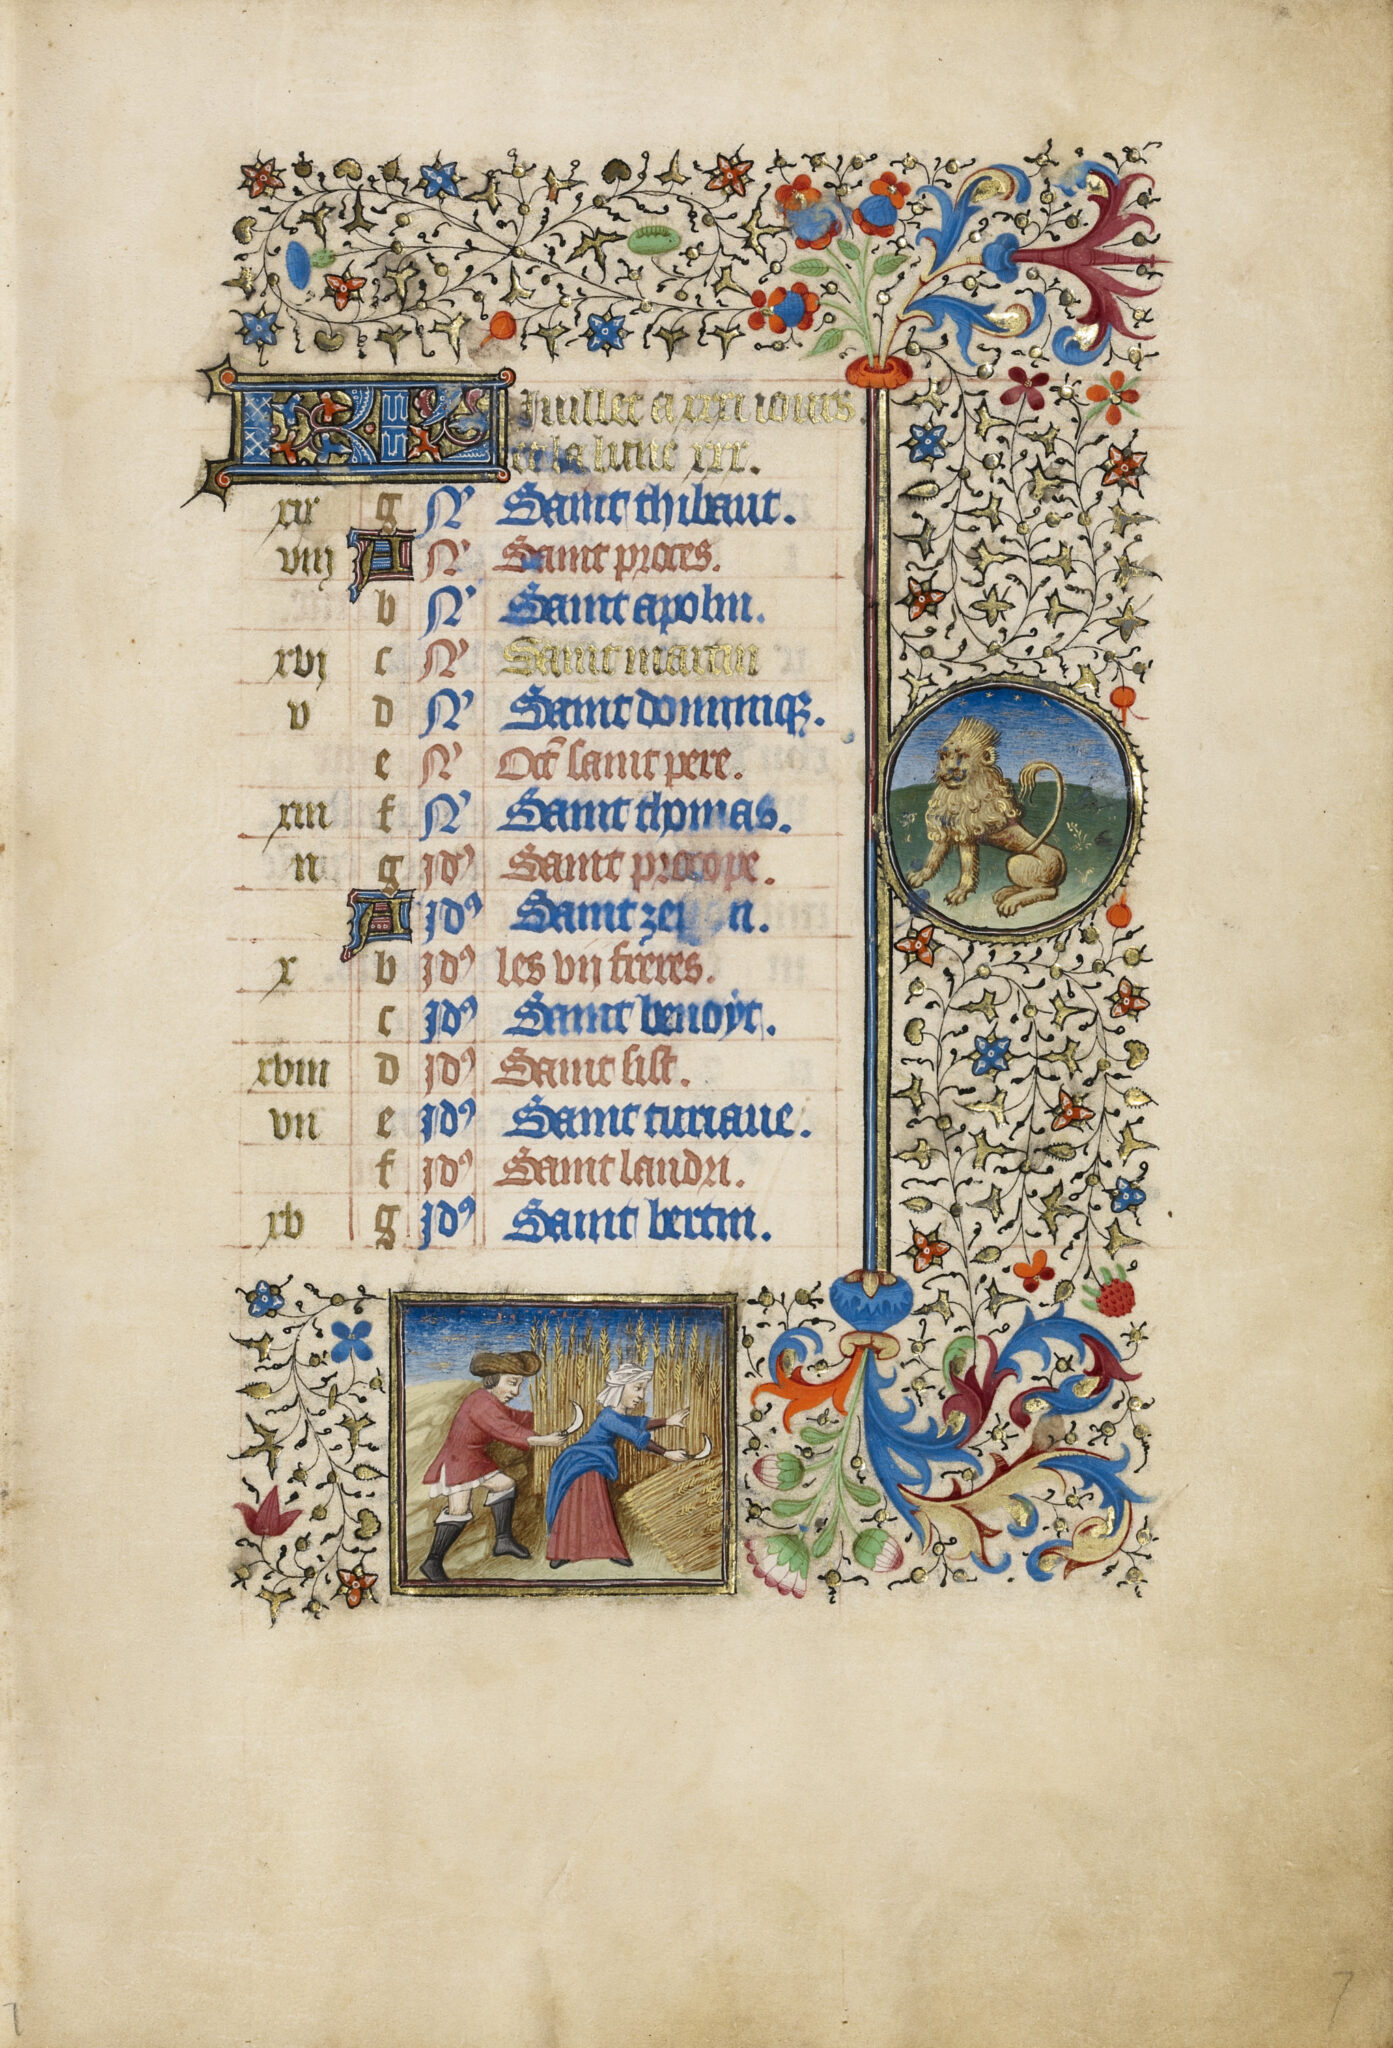 KL Juillet a xxxi iours
et la lune xxx.
xix g N' Saint thibaut.
viij A N' Saint proces.
b N' Saint apolin.
xvj c N' Saint martin
v d N' Saint dominiq3.
e N' Oct saint pere.
xiii f N' Saint thomas.
ii g jd9 Saint procope.
A jd9 Saint zenon.
x b jd9 les vii freres.
c jd9 Saint benoyt.
xviii d jd9 Saint sist.
vii e jd9 Saint turiaue.
f jd9 Saint landri.
xv g jd9 Saint bertin.
7